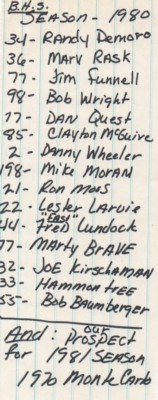 B.H.S.
SEASON - 1980
34 - RANDY Demaro
36 - MARV RASK
77 - Jim Funnell
98 - Bob Wright
77 - DAN Quest
85 - Clayton McGuire
2 - Danny Wheeler
198 - Mike MORAN
21 - Ron
22 - Lester Laruie
"EAST"
44 - FReD Lundock
77 - MARty BRAVE
32 - JOE Kirschaman
33 - HAMMON tree
55 - Bob Baumberger
And: our PROSPECT
for 1981 SEASON
1970 Monte Carlo